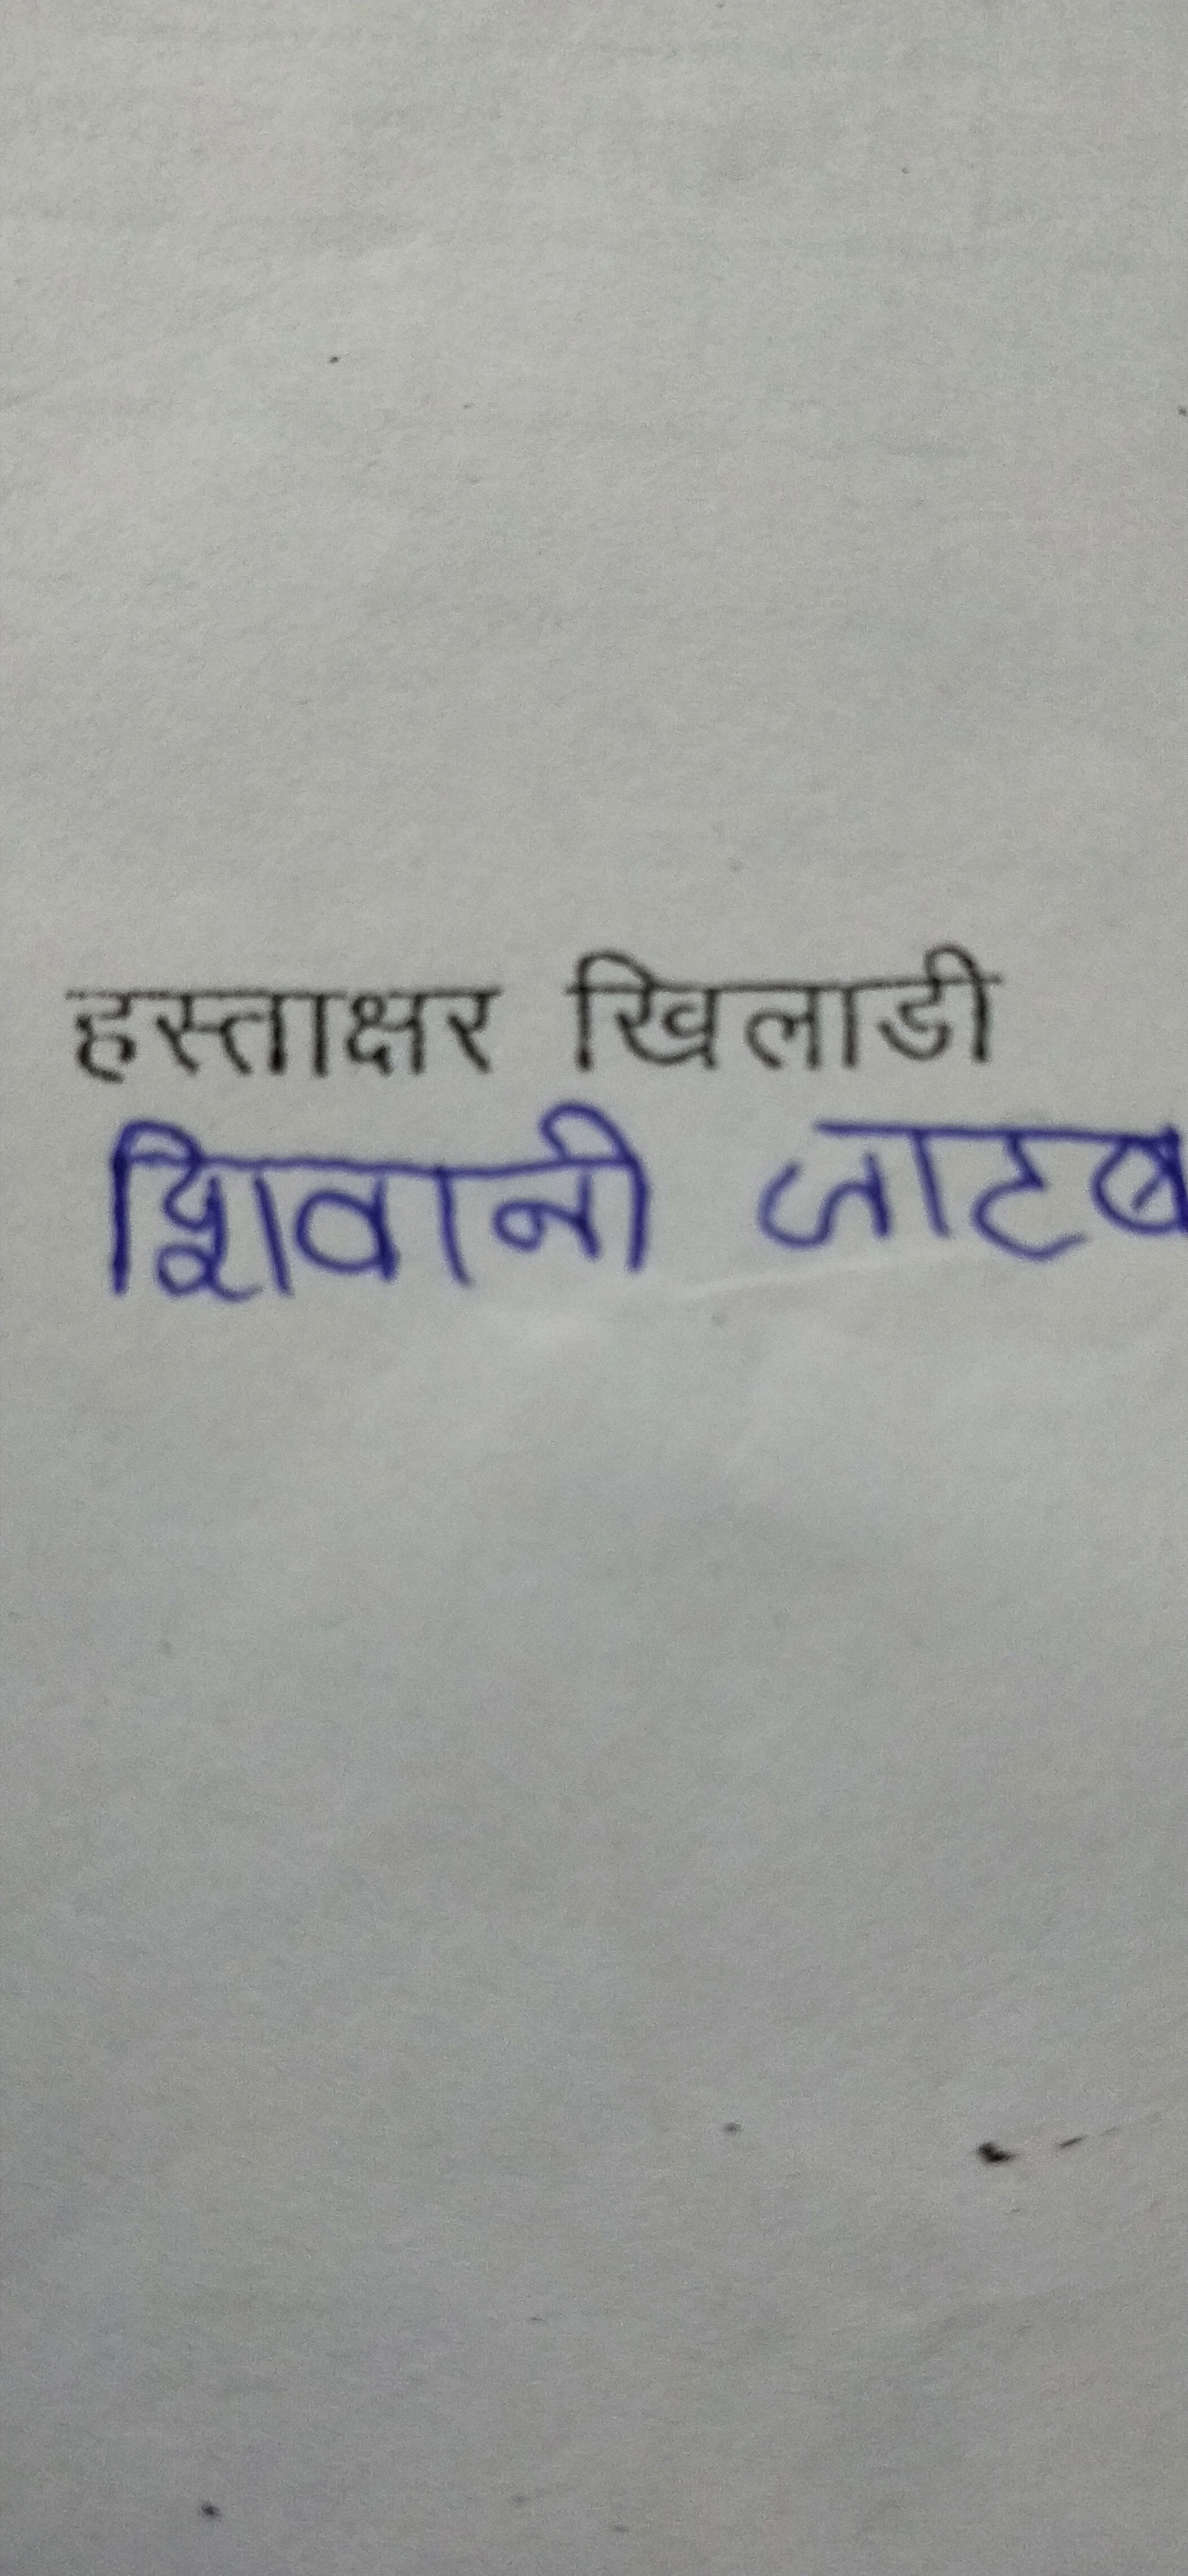 हस्ताक्षर खिलाडी
शिवानी जाटब